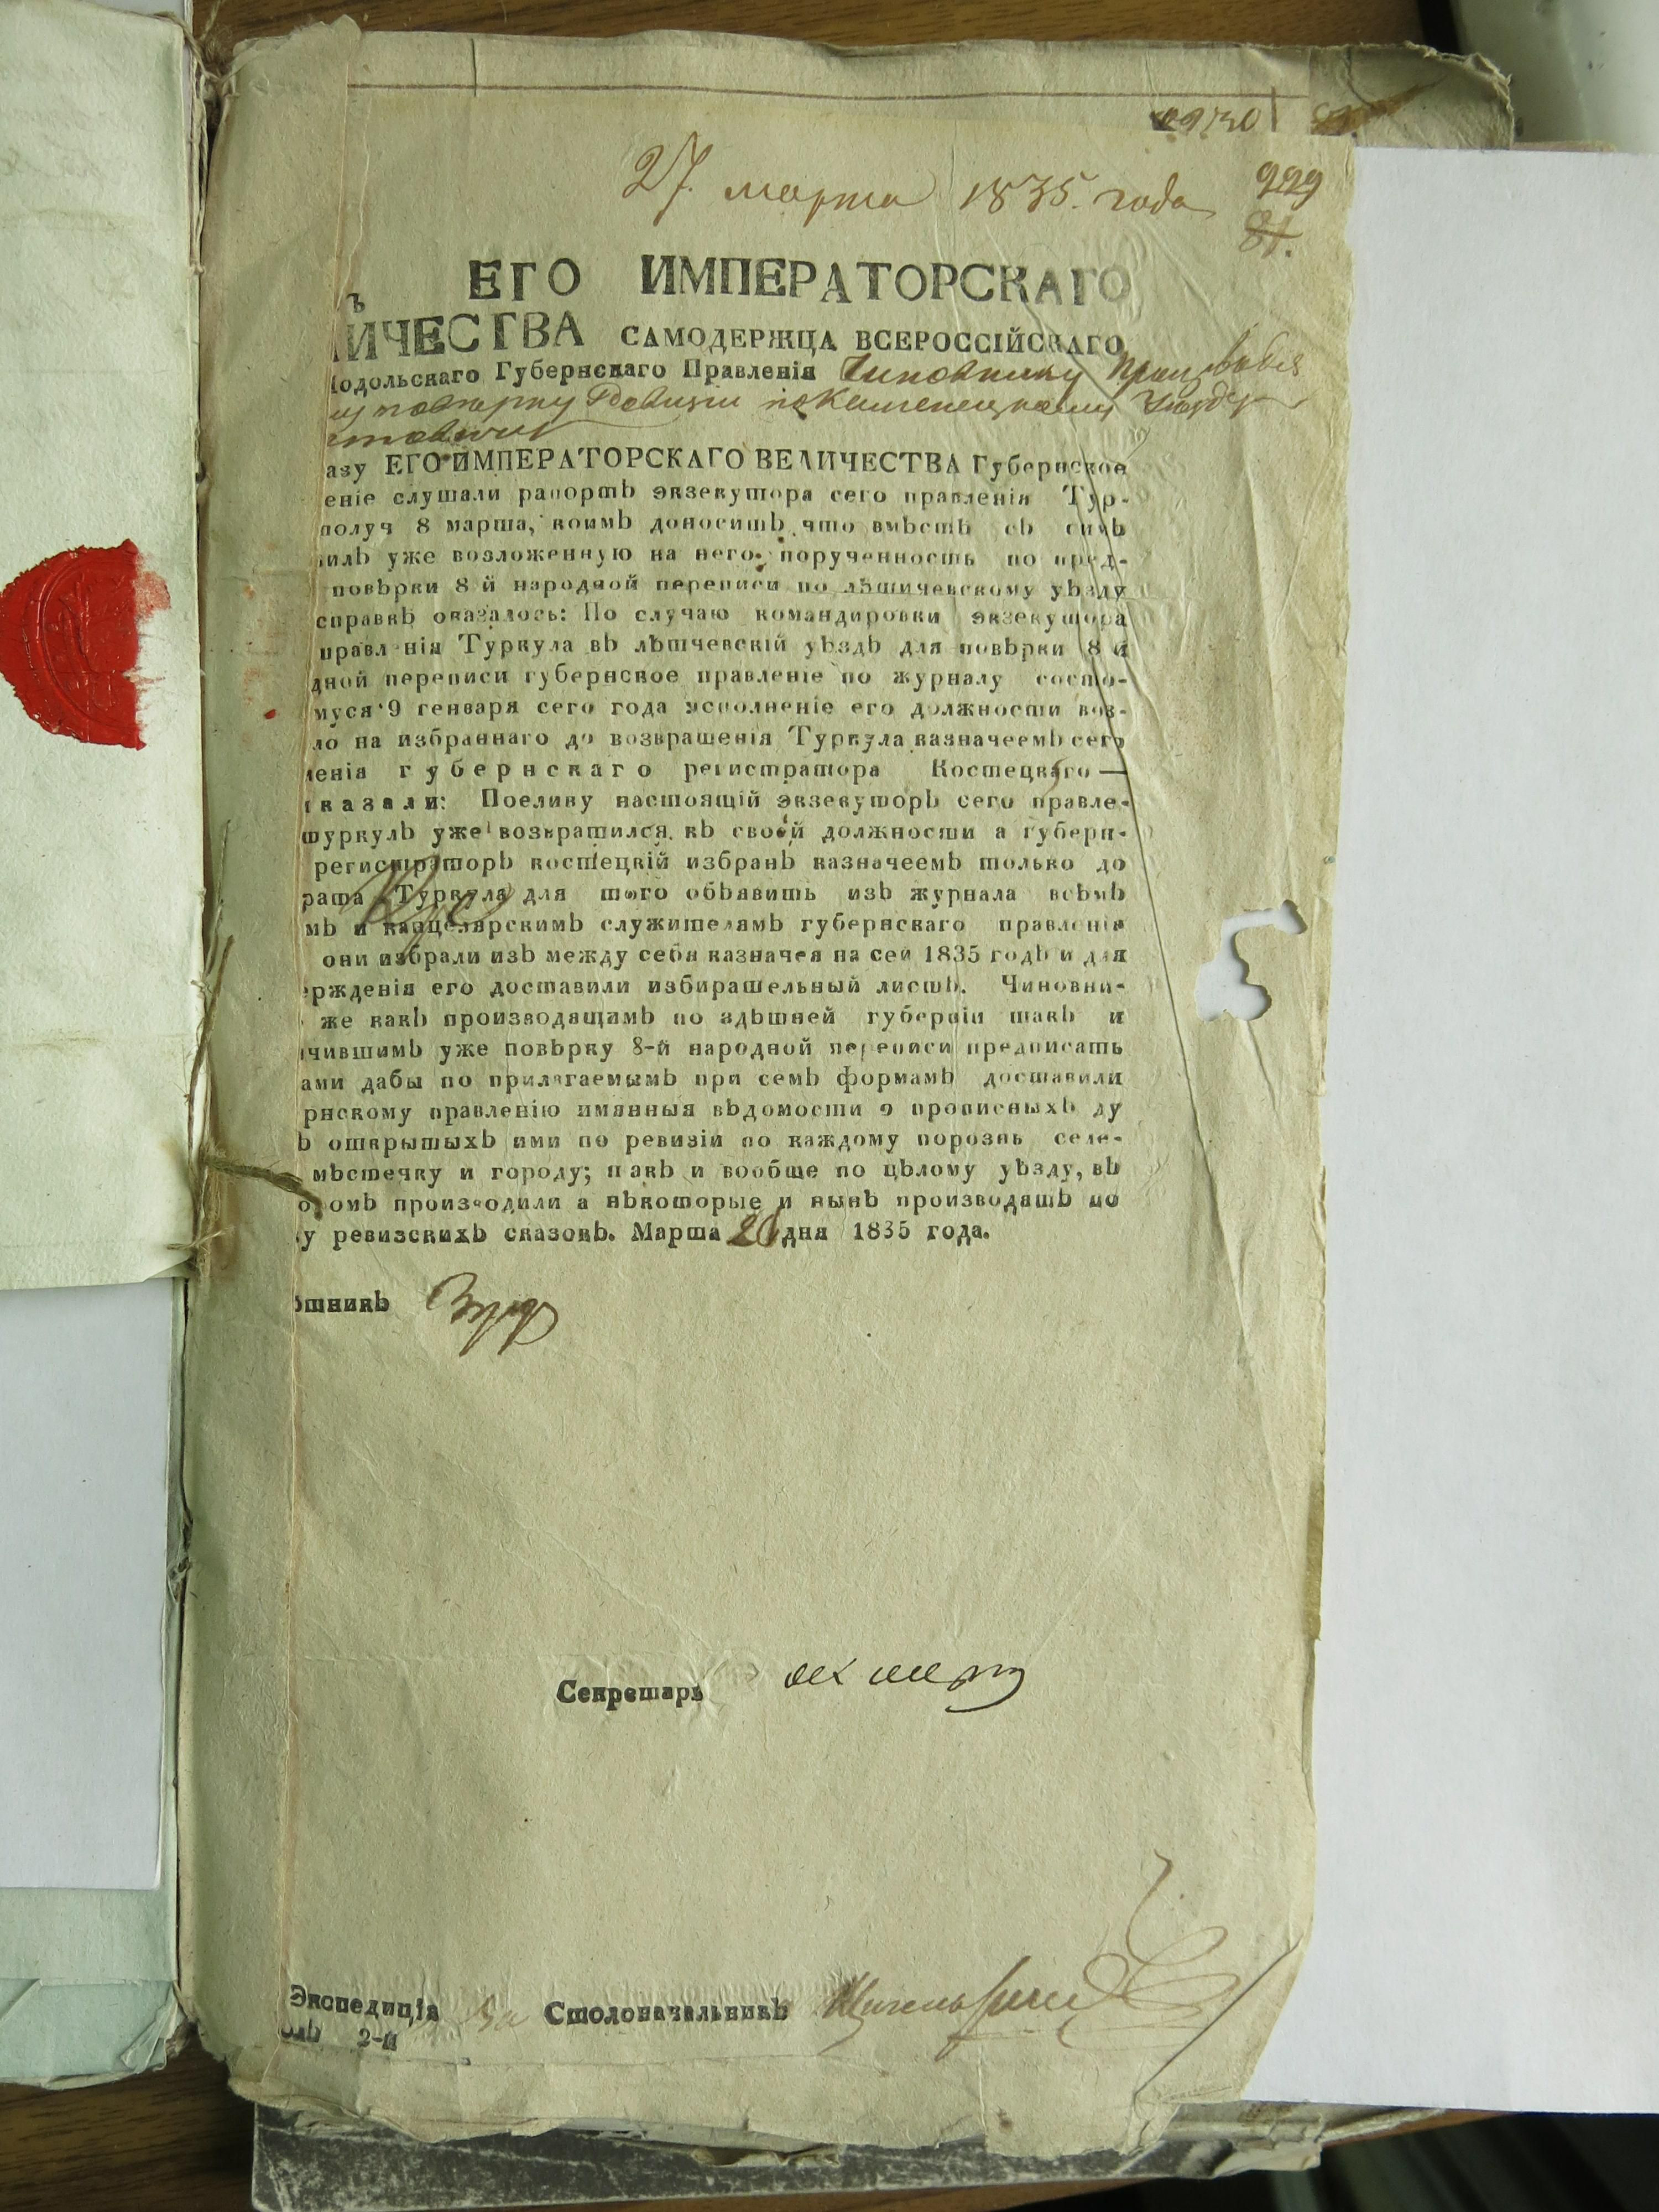 27. марта 1835. года
229
81.
ъ ЕГО ИМПЕРАТОРСКАГО
ИЧЕСТВА САМОДЕРЖЦА ВСЕРОССІЙСКАГО
Подольскаго Губернскаго Правленія Чиновнику
Ревизіи по Каменецкому Уезду
азу ЕГО ИМПЕРАТОРСКАГО ВЕЛИЧЕСТВА Губернское
еніе слушали рапортъ экзекутора сего правленія Тур-
получ 8 марта, коимъ доноситъ что вмѣстѣ съ симъ
илъ уже возложенную на него порученность по пред-
повѣрки 8 й народной переписи по лѣтичевскому уѣзду
справкѣ оказалось: По случаю командировки экзекутора
правленія Туркула въ лѣтчевскій уѣздъ для повѣрки 8 й
дной переписи губернское правленіе по журналу состо-
муся 9 генваря сего года исполненіе его должности воз-
ло на избраннаго до возвращенія Туркула казначеемъ сего
ленія губернскаго регистратора Костецкаго —
казали: Поелику настоящій экзекуторъ сего правле-
туркулъ уже возвратился къ своей должности а губерн-
регистраторъ костецкій избранъ казначеемъ только до
рата Туркула для того объявить изъ журнала всѣмъ
мъ и канцелярскимъ служителямъ губернскаго правленія
они избрали изъ между себя казначея на сей 1835 годъ и для
ержденія его доставили избирательный листъ. Чиновни-
же какъ производящимъ по здѣшней губерніи такъ и
чившимъ уже повѣрку 8-й народной переписи предписать
ами дабы по прилагаемымъ при семъ формамъ доставили
рнскому правленію имянныя вѣдомости о прописныхъ ду
ъ открытыхъ ими по ревизіи по каждому порознь селе-
мѣстечку и городу; такъ и вообще по цѣлому уѣзду, въ
оромъ производили а нѣкоторые и нынѣ производятъ по
у ревизскихъ сказокъ. Марта 20 дня 1835 года.
ѣтникъ
Секретарь
Экспедиція За Столоначальникъ
олъ 2-й